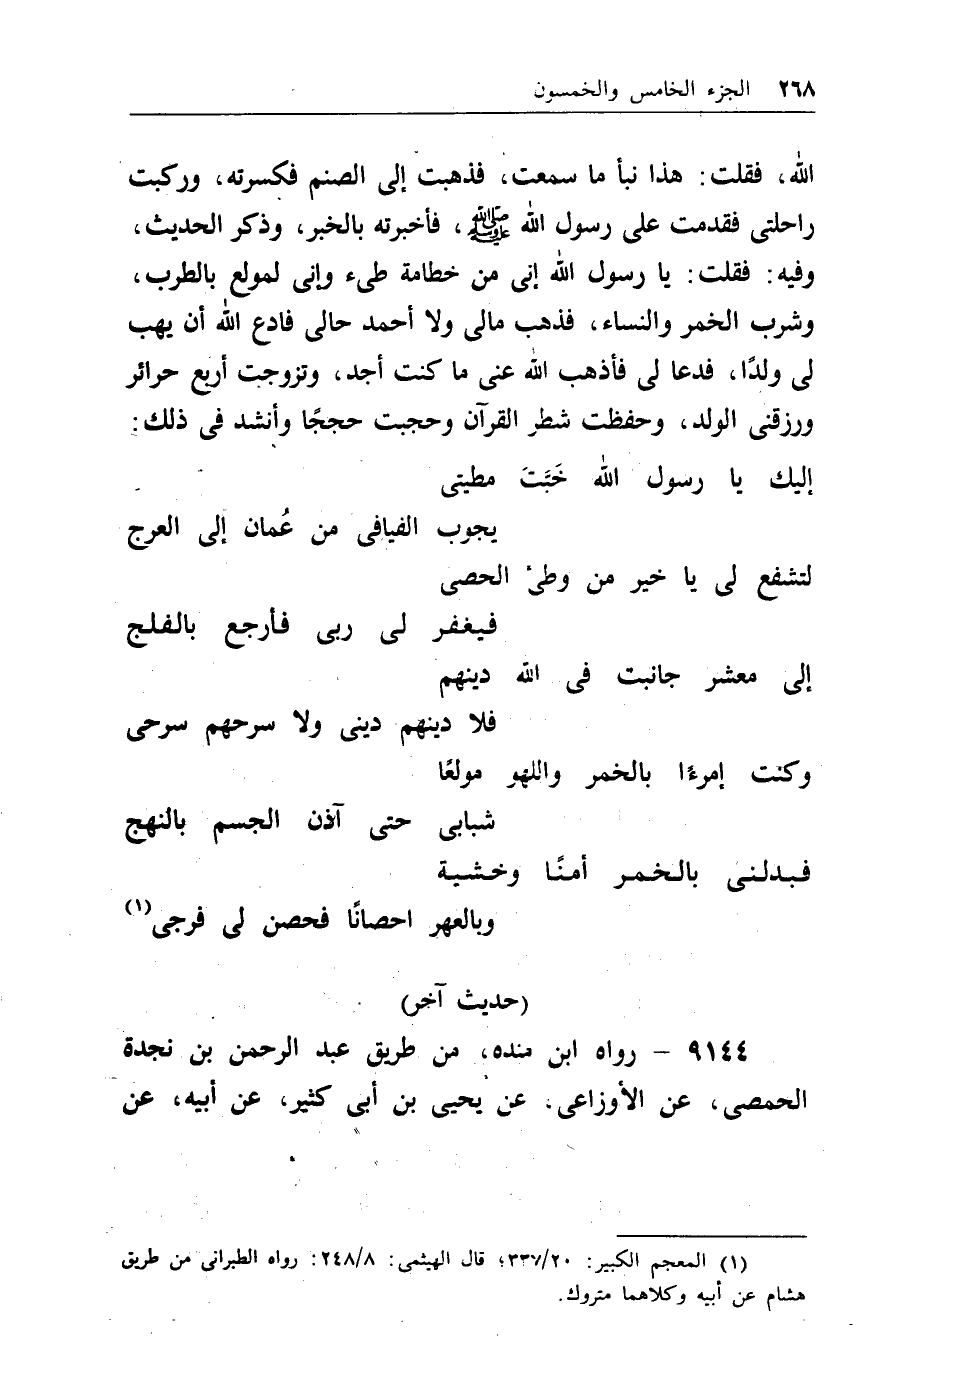 ٢٦٨ الجزء الخامس والخمسون
الله، فقلت: هذا نبأ ما سمعت، فذهبت إلى الصنم فكسرته، وركبت
راحلتى فقدمت على رسول الله ﷺ، فأخبرته بالخبر، وذكر الحديث،
وفيه: فقلت: يا رسول الله إنى من خطامة طىء وإنى لمولع بالطرب،
وشرب الخمر والنساء، فذهب مالى ولا أحمد حالى فادع الله أن يهب
لى ولدًا، فدعا لى فأذهب الله عنى ما كنت أجد، وتزوجت أربع حرائر
ورزقنى الولد، وحفظت شطر القرآن وحججت حججًا وأنشد فى ذلك:
إليك يا رسول الله خَبَّتَ مطيتى
يجوب الفيافى من عُمان إلى العرج
لتشفع لى يا خير من وطئ الحصى
فيغفر لى ربى فأرجع بالفلج
إلى معشر جانبت فى الله دينهم
فلا دينهم دينى ولا سرحهم سرحى
وكنت إمرءًا بالخمر واللهو مولعًا
شبابى حتى آذن الجسم بالنهج
فبدلنى بالخمر أمنًا وخشية
وبالعهر احصانًا فحصن لى فرجى(١)
(حديث آخر)
٩١٤٤ – رواه ابن منده، من طريق عبد الرحمن بن نجدة
الحمصى، عن الأوزاعى. عن يحيى بن أبى كثير، عن أبيه، عن
(١) المعجم الكبير: ٣٣٧/٢٠؛ قال الهيثمى: ٢٤٨/٨: رواه الطبرانى من طريق
هشام عن أبيه وكلاهما متروك.